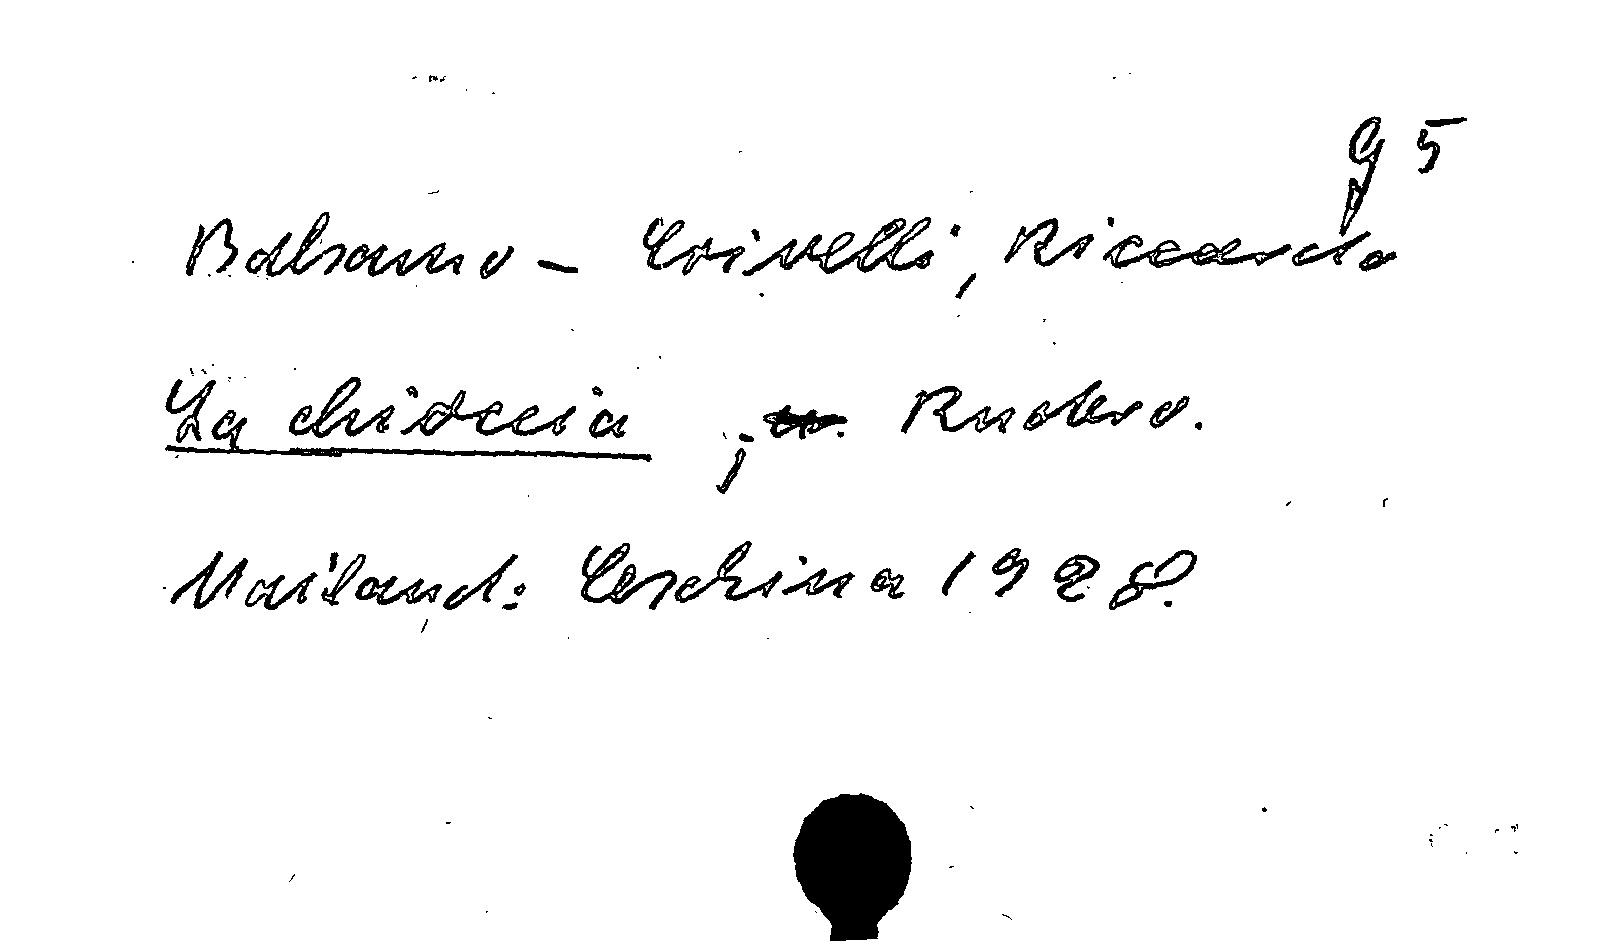 g 5
Balsamo - Crivelli, Riccardo
La chioccia ; Roman.
Mailand: Ceschina 1928.